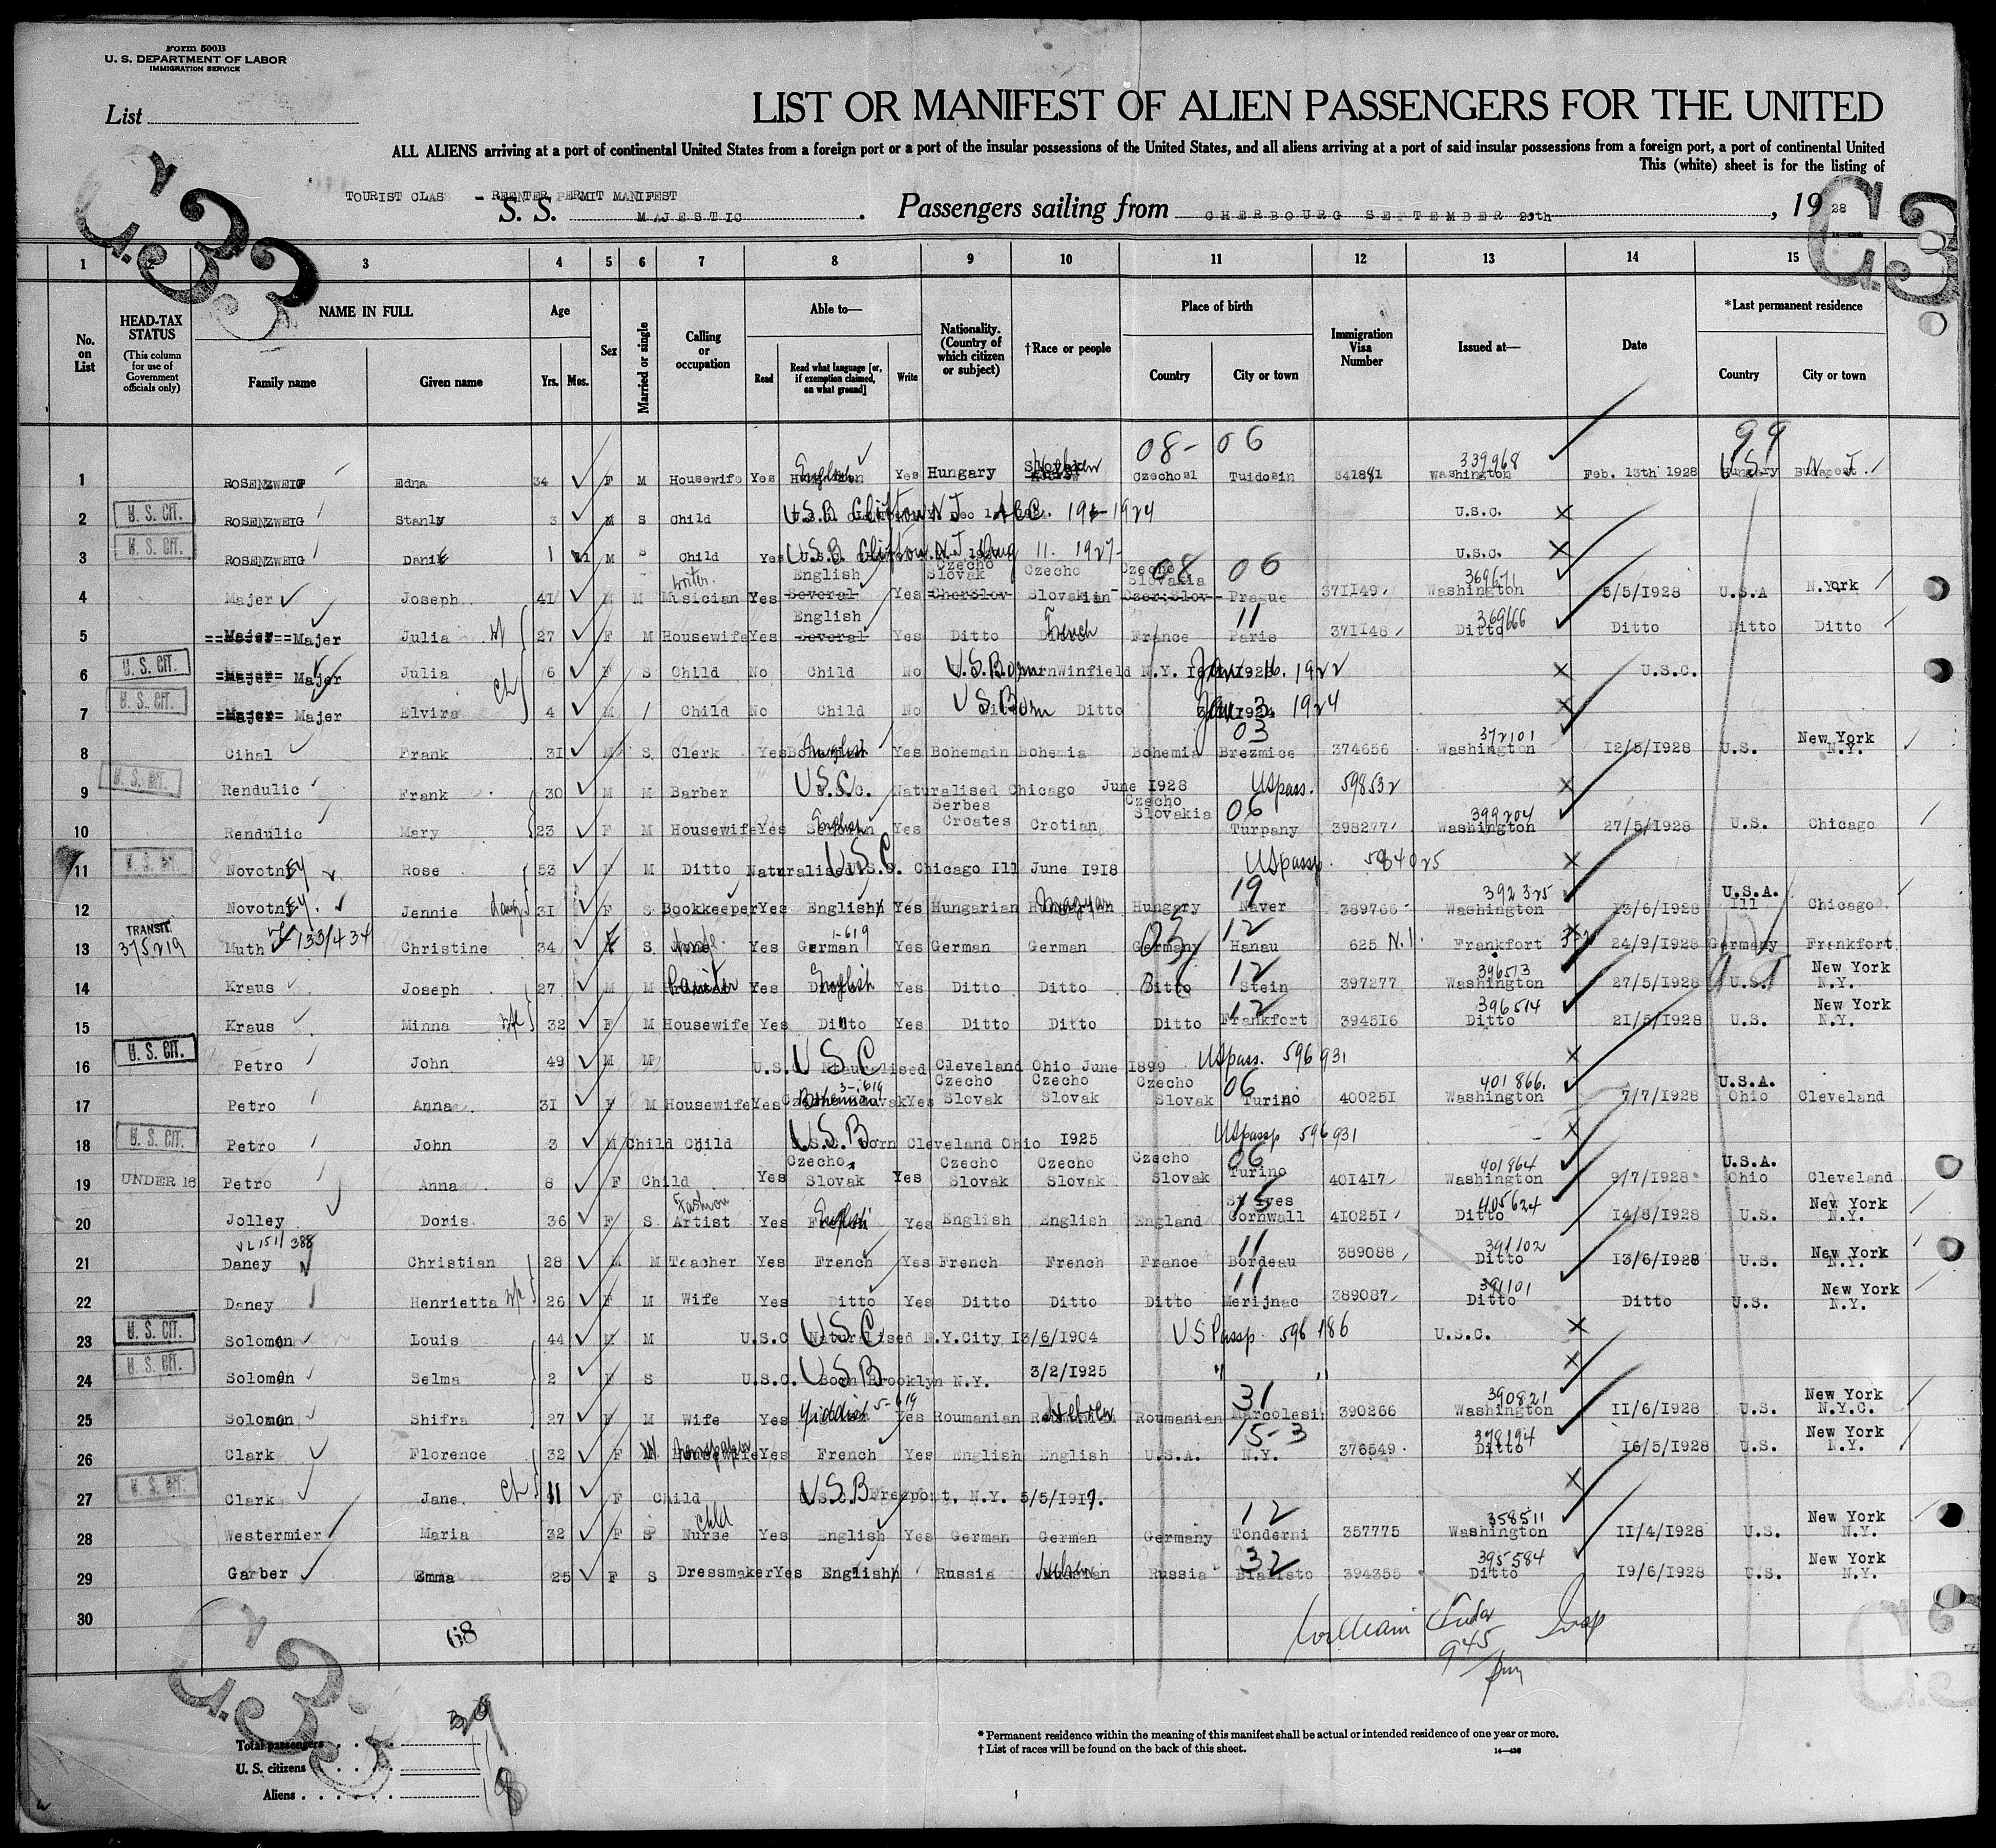 Form 500B
U. S. DEPARTMENT OF LABOR
IMMIGRATION SERVICE
List
LIST OR MANIFEST OF ALIEN PASSENGERS FOR THE UNITED
ALL ALIENS arriving at a port of continental United States from a foreign port or a port of the insular possessions of the United States, and all aliens arriving at a port of said insular possessions from a foreign port, a port of continental United
This (white) sheet is for the listing of
TOURIST CLAS - REENTER PERMIT MANIFEST
S. S. MAJESTIC . Passengers sailing from CHERBOURG SEPTEMBER , 19 28
1 2 3 4 5 6 7 8 9 10 11 12 13 14 15
No. on List
HEAD-TAX STATUS (This column for use of Government officials only)
NAME IN FULL Family name Given name
Age Yrs. Mos.
Sex
Married or single
Calling or occupation
Able to— Read Read what language [or, if exemption claimed, on what ground] Write
Nationality. (Country of which citizen or subject)
†Race or people
Place of birth Country City or town
Immigration Visa Number
Issued at—
Date
*Last permanent residence Country City or town
08- 06 99
339968
1 ROSENZWEIG Edna 34 F M Housewife Yes English Yes Hungary Czechosl Tuidosin 341881 Washington Feb. 13th 1928 Hungary Budapest
2 U. S. CIT. ROSENZWEIG Stanly 3 M S Child U.S.B Clifton N.J. 1924 U.S.C.
3 U. S. CIT. ROSENZWEIG 1 11 M S Child Yes U.S.B. Clifton N.J. Aug 11. 1927 U.S.C.
Writer. English Czecho Slovak Czecho Czecho Slovakia 08 06 369671
4 Majer Joseph 41 M M Musician Yes Several Yes Slovakian Prague 371149 Washington 5/5/1928 U.S.A N.York
English 11 369666
5 Majer Majer Julia 27 F M Housewife Yes Several Yes Ditto French France Paris 371148 Ditto Ditto Ditto Ditto
6 U. S. CIT. Majer Majer Julia 6 F S Child No Child No U.S.Born Winfield N.Y. 1922 U.S.C.
7 U. S. CIT. Majer Majer Elvira 4 M / Child No Child No U.S.Born Ditto 1924
03 372101 New York
8 Cihal Frank 31 M S Clerk Yes English Yes Bohemain Bohemia Bohemia Brezmice 374656 Washington 12/5/1928 U.S. N.Y.
9 U. S. CIT. Rendulic Frank 30 M M Barber U.S.C. Naturalised Chicago June 1928 USpass. 598532
Serbes Croates Czecho Slovakia 06 399204
10 Rendulic Mary 23 F M Housewife Yes English Yes Crotian Turpany 398277 Washington 27/5/1928 U.S. Chicago
11 Novotney Rose 53 F M Ditto Naturalised U.S.C. Chicago Ill June 1918 USpassp. 584025
19 392325 U.S.A.
12 Novotney Jennie daug. 31 F S Bookkeeper Yes English Yes Hungarian Magyar Hungary Naver 389766 Washington 13/6/1928 Ill Chicago
TRANSIT 1-619 12
13 375219 Muth Christine 34 S Yes German Yes German German Germany Hanau 625 N.I. Frankfort 24/9/1928 Germany Frankfort
12 396513 New York
14 Kraus Joseph 27 M M Yes English Yes Ditto Ditto Ditto Stein 397277 Washington 27/5/1928 U.S. N.Y.
12 396514 New York
15 Kraus Minna 32 F M Housewife Yes Ditto Yes Ditto Ditto Ditto Frankfort 394516 Ditto 21/5/1928 U.S. N.Y.
16 U. S. CIT. Petro John 49 M M U.S.C Naturalised Cleveland Ohio June 1899 USpass. 596931
Czecho Czecho Czecho 06 401866. U.S.A.
17 Petro Anna 31 F M Housewife Yes Yes Slovak Slovak Slovak Turino 400251 Washington 7/7/1928 Ohio Cleveland
18 U. S. CIT. Petro John 3 M Child Child U.S.B Born Cleveland Ohio 1925 USpassp 596931
Czecho Czecho Czecho Czecho 06 401864 U.S.A.
19 UNDER 16 Petro Anna 8 F Child Yes Slovak Yes Slovak Slovak Slovak Turino 401417 Washington 9/7/1928 Ohio Cleveland
Fashion St Ives 15 405624 New York
20 Jolley Doris 36 F S Artist Yes English Yes English English England Cornwall 410251 Ditto 14/8/1928 U.S. N.Y.
11 391102 New York
21 Daney Christian 28 M M Teacher Yes French Yes French French France Bordeau 389088 Ditto 13/6/1928 U.S. N.Y.
11 391101 New York
22 Daney Henrietta 26 F M Wife Yes Ditto Yes Ditto Ditto Ditto Merijnac 389087 Ditto Ditto U.S. N.Y.
23 U. S. CIT. Solomon Louis 44 M M U.S.C Naturalised N.Y.City 13/6/1904 US Passp 596186 U.S.C.
24 U. S. CIT. Solomon Selma 2 F S U.S.C. Born Brooklyn N.Y. 3/2/1925 " "
5-619 31 390821 New York
25 Solomon Shifra 27 F M Wife Yes Yiddish Yes Roumanian Hebrew Roumanian Marcolesi 390266 Washington 11/6/1928 U.S. N.Y.C.
15-3 378194 New York
26 Clark Florence 32 F Yes French Yes English English U.S.A. N.Y. 376549 Ditto 16/5/1928 U.S. N.Y.
27 U. S. CIT. Clark Jane Ch 11 F Child U.S.B Freeport, N.Y. 5/5/1917.
Child 12 358511 New York
28 Westermier Maria 32 F S Nurse Yes English Yes German German Germany Tonderni 357775 Washington 11/4/1928 U.S. N.Y.
32 395584 New York
29 Garber Emma 25 F S Dressmaker Yes English Yes Russia Russia 394355 Ditto 19/6/1928 U.S. N.Y.
30
68
William Insp
945
Total passengers
U. S. citizens
Aliens
* Permanent residence within the meaning of this manifest shall be actual or intended residence of one year or more.
† List of races will be found on the back of this sheet.